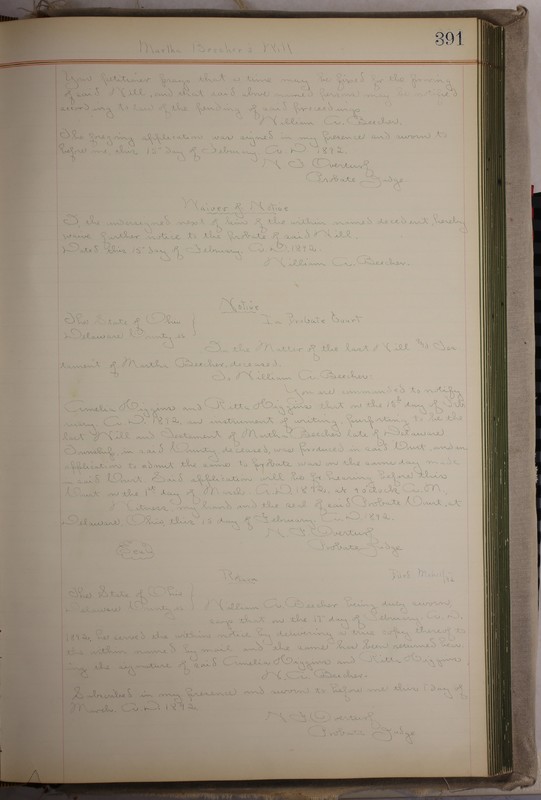 391
Martha Beecher's Will
Your petitioner prays that a time may be fixed for the proving
of said Will, and that said above named persons may be notified
according to law of the pendency of said proceedings.
William A. Beecher.
The foregoing application was signed in my presence and sworn to
before me this 15" day of February A.D. 1892.
Probate Judge
Waiver of Notice
I, the undersigned next of kin of the within named decedent, hereby
waive further notice to the probate of said Will.
Dated this 15" day of February A.D. 1892.
William A. Beecher.
Notice
The State of Ohio
In Probate Court
Delaware County, ss
In the Matter of the last Will & Tes-
tament of Martha Beecher, deceased.
To William A. Beecher:
You are commanded to notify
Amelia Higgins and Higgins that on the 15th day of Feb-
ruary A.D. 1892 an instrument of writing, purporting to be the
last Will and Testament of Martha Beecher late of Delaware
Township in said County deceased, was produced in said Court, and an
application to admit the same to probate was on the same day made
in said Court. Said application will be for hearing before this
Court on the 1st day of March A.D. 1892, at o'clock A.M.
Witness my hand and the seal of said Probate Court, at
Delaware, Ohio, this 15 day of February A.D. 1892.
Probate Judge
Seal
The State of Ohio
Delaware County ss William A. Beecher being duly sworn
says that on the 15" day of February A.D.
1892, he served the within notice by delivering a true copy thereof to
the within named by mail and the same has been returned bear-
ing the signature of said Amelia Higgins and Higgins.
W. A. Beecher.
Subscribed in my presence and sworn to before me this 1 day of
March A.D. 1892
Probate Judge